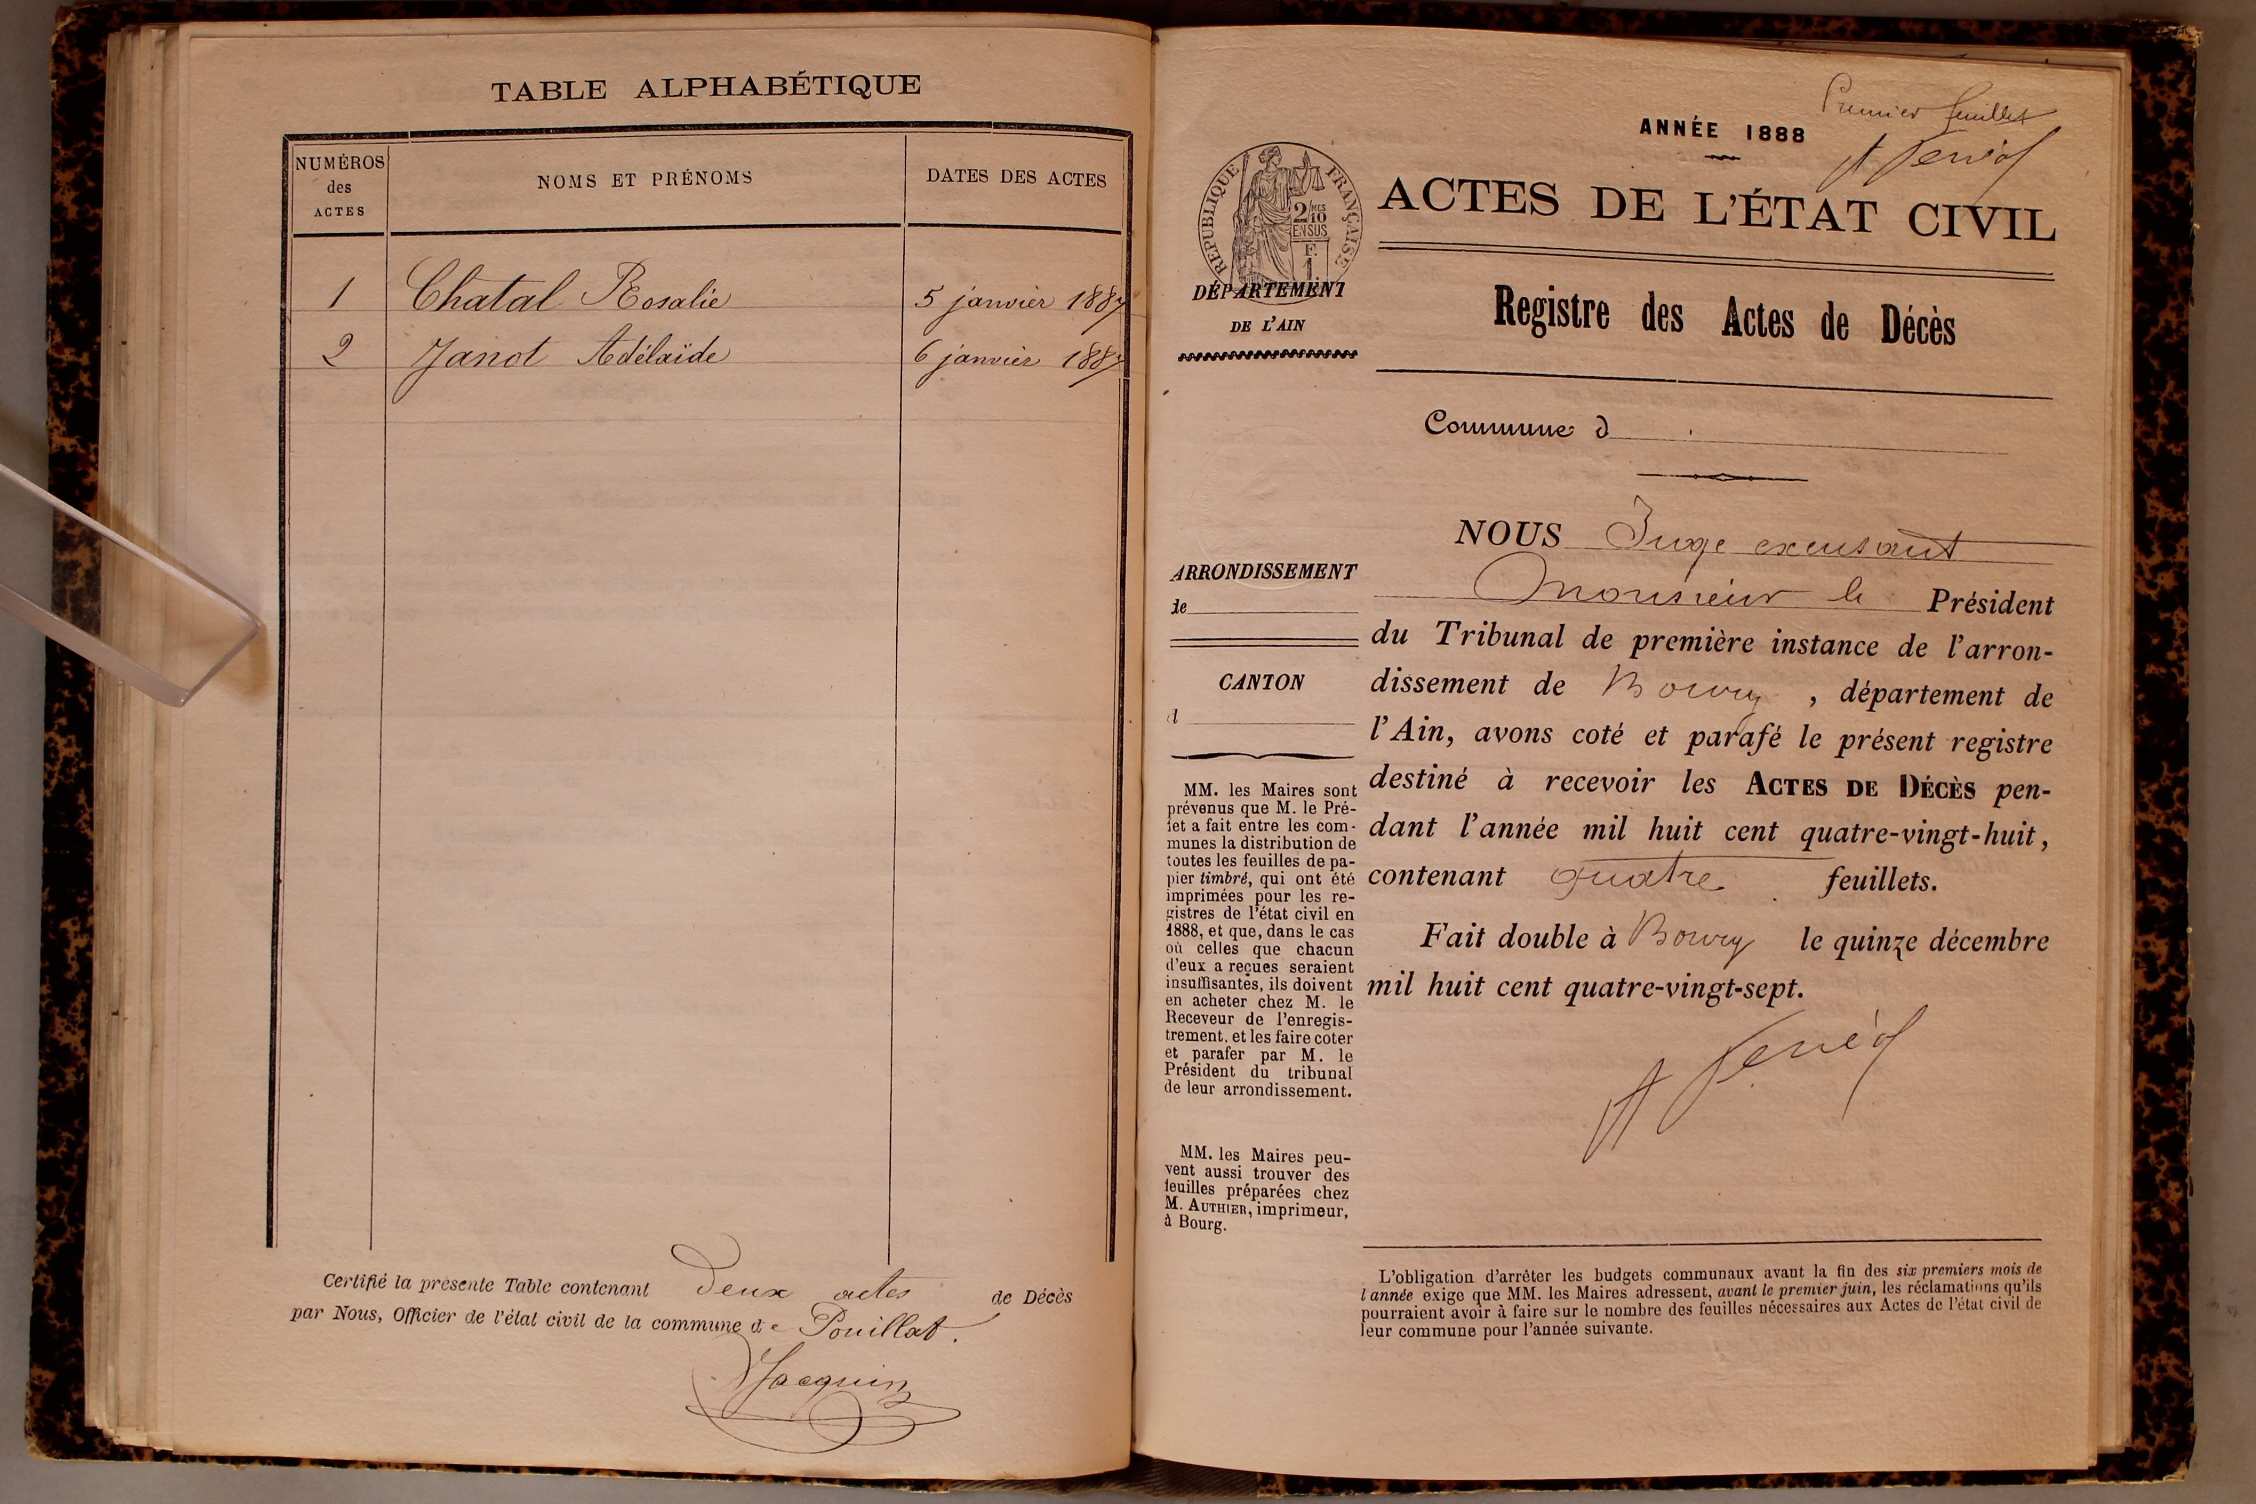 TABLE ALPHABÉTIQUE
NUMÉROS
des
ACTES
NOMS ET PRÉNOMS
DATES DES ACTES
1 Chatal Rosalie 5 janvier 1887
2 Janot Adélaïde 6 janvier 1887
Certifié la présente Table contenant deux actes de Décès
par Nous, Officier de l'état civil de la commune de Pouillat.
Jacquin
Premier feuillet
ANNÉE 1888
RÉPUBLIQUE FRANÇAISE
2/10
MES
EN SUS
F.
1
ACTES DE L'ÉTAT CIVIL
DÉPARTEMENT
DE L'AIN
Registre des Actes de Décès
Commune d
ARRONDISSEMENT
de
CANTON
d
MM. les Maires sont
prévenus que M. le Pré-
fet a fait entre les com-
munes la distribution de
toutes les feuilles de pa-
pier timbré, qui ont été
imprimées pour les re-
gistres de l'état civil en
1888, et que, dans le cas
où celles que chacun
d'eux a reçues seraient
insuffisantes, ils doivent
en acheter chez M. le
Receveur de l'enregis-
trement, et les faire coter
et parafer par M. le
Président du tribunal
de leur arrondissement.
MM. les Maires peu-
vent aussi trouver des
feuilles préparées chez
M. AUTHIER, imprimeur,
à Bourg.
NOUS Juge excusant
Monsieur le Président
du Tribunal de première instance de l'arron-
dissement de Bourg, département de
l'Ain, avons coté et parafé le présent registre
destiné à recevoir les ACTES DE DÉCÈS pen-
dant l'année mil huit cent quatre-vingt-huit,
contenant quatre feuillets.
Fait double à Bourg le quinze décembre
mil huit cent quatre-vingt-sept.
L'obligation d'arrêter les budgets communaux avant la fin des six premiers mois de
l'année exige que MM. les Maires adressent, avant le premier juin, les réclamations qu'ils
pourraient avoir à faire sur le nombre des feuilles nécessaires aux Actes de l'état civil de
leur commune pour l'année suivante.